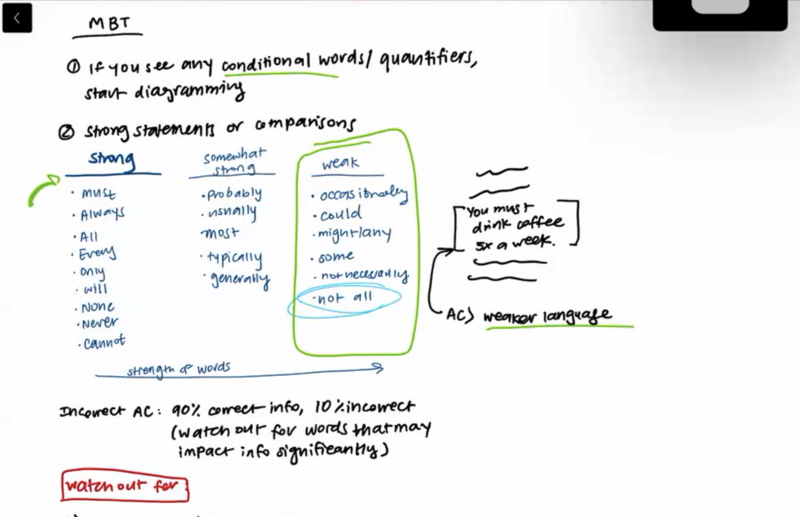 MBT
① If you see any conditional words/ quantifiers,
start diagramming
② strong statements or comparisons
strong
• must
• Always
• All
• Every
• only
• will
• None
• Never
• cannot
somewhat
strong
• probably
• usually
most
• typically
• generally
weak
• occasionally
• could
• might/any
• some
• not necessarily
• not all
strength of words
You must
drink coffee
5x a week.
AC) weaker language
Incorrect AC: 90% correct info, 10% incorrect
(watch out for words that may
impact info significantly)
watch out for